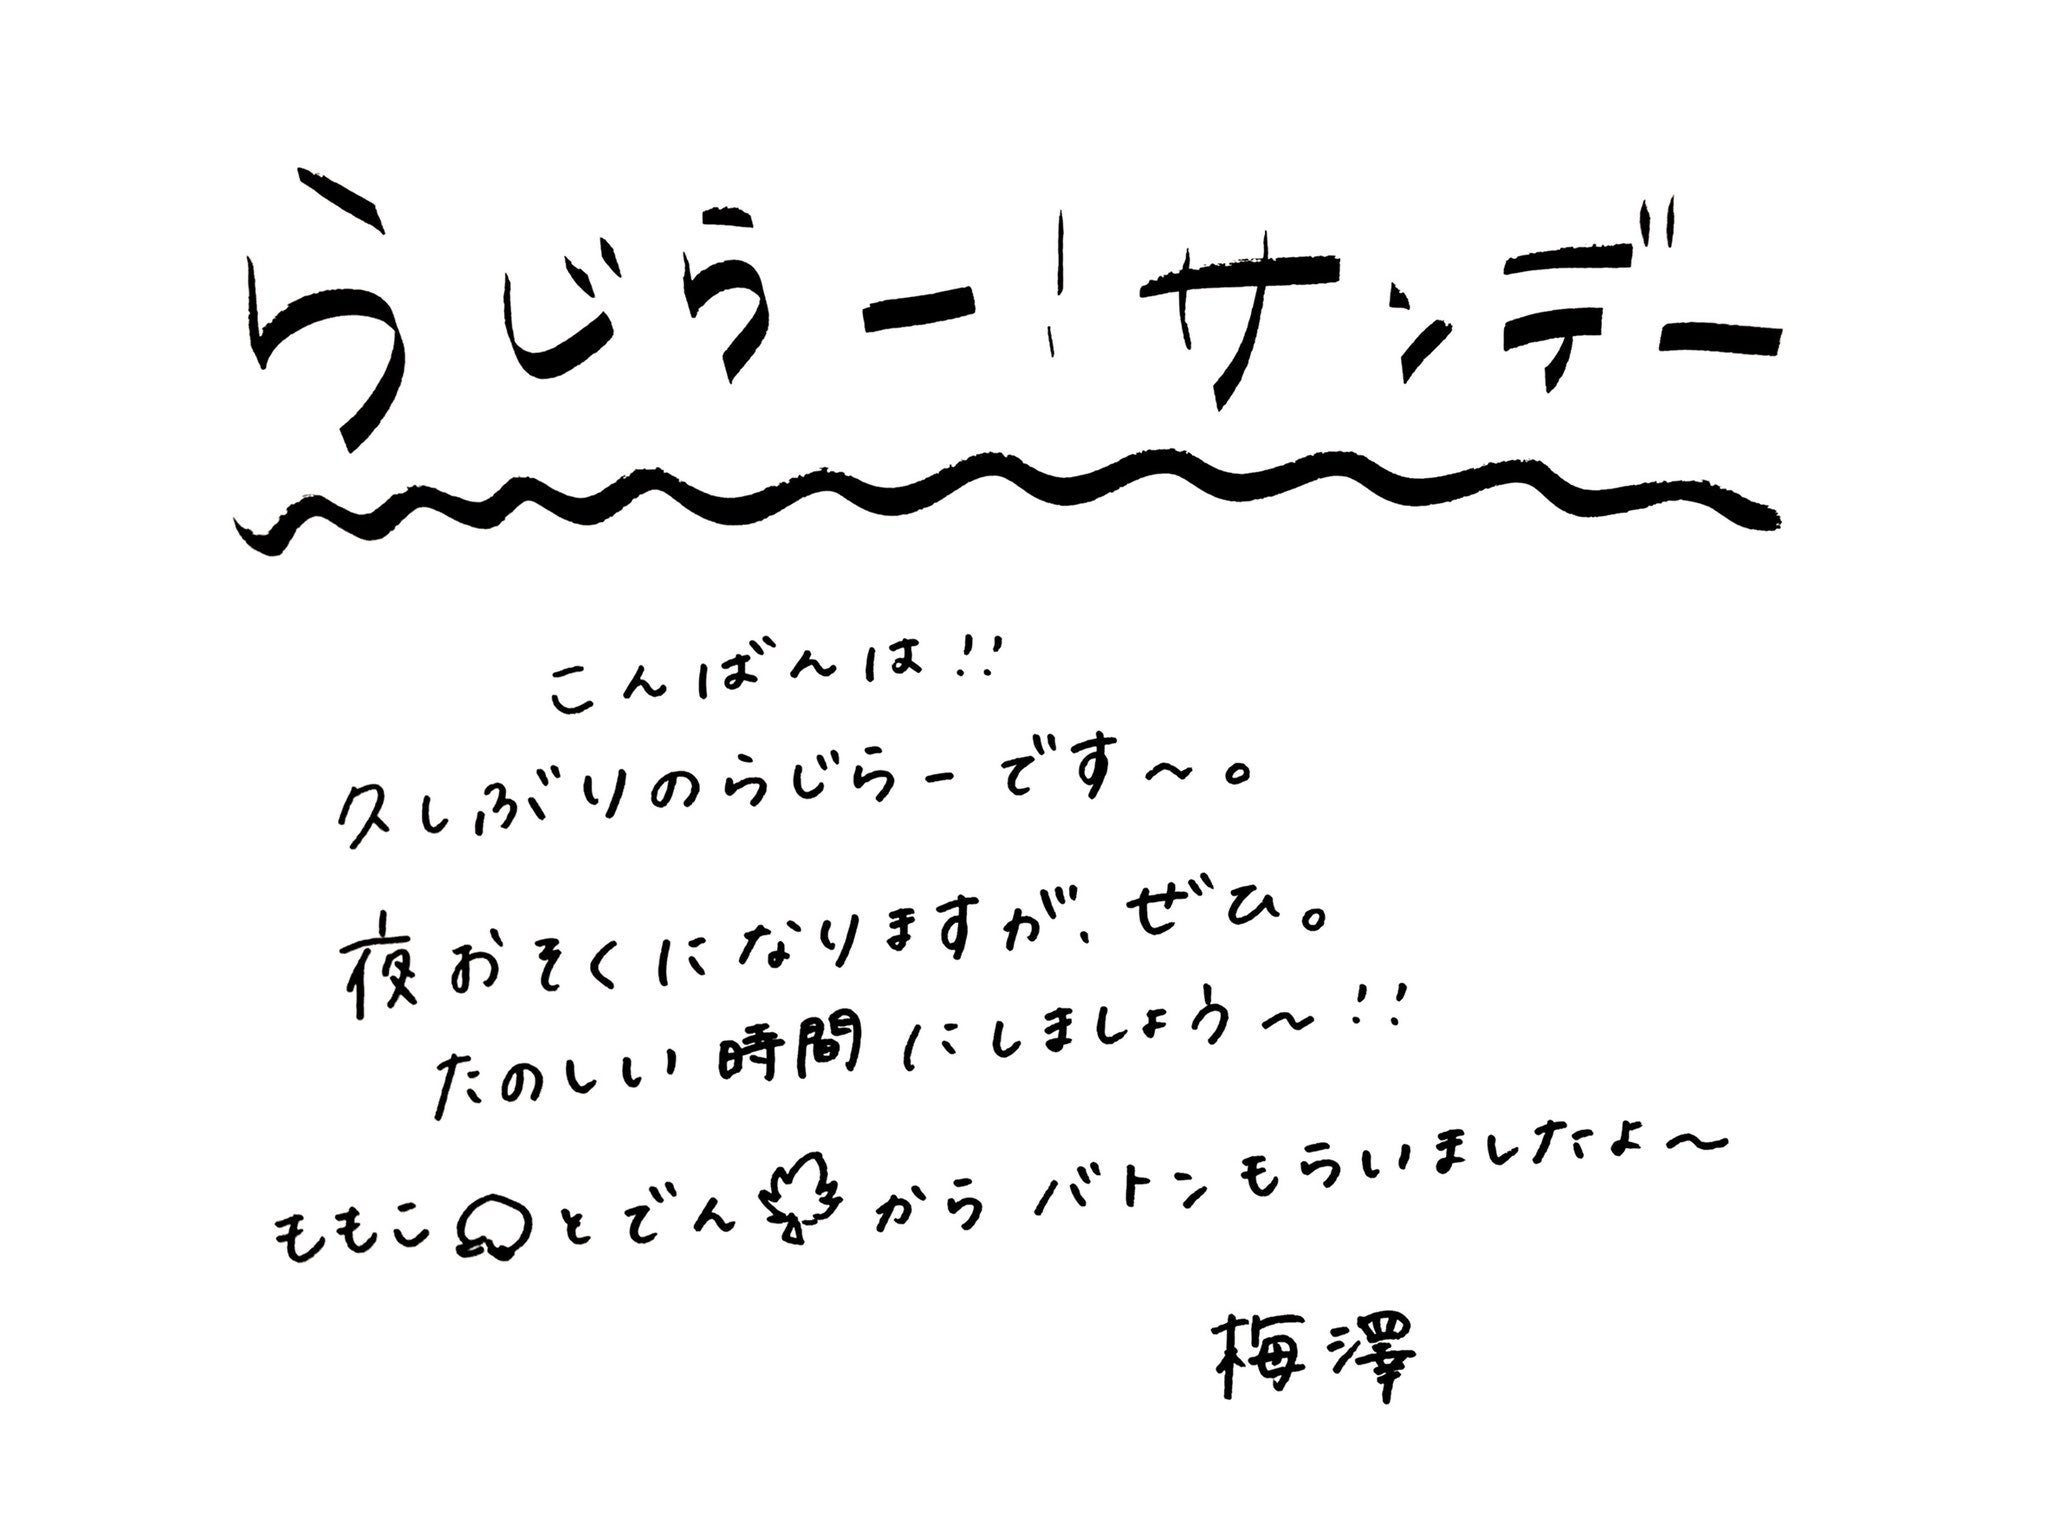 らじらー！サンデー
こんばんは!!
久しぶりのらじらーです〜。
夜おそくになりますが、ぜひ。
たのしい時間にしましょう〜!!
ももことでんからバトンもらいましたよ〜
梅澤